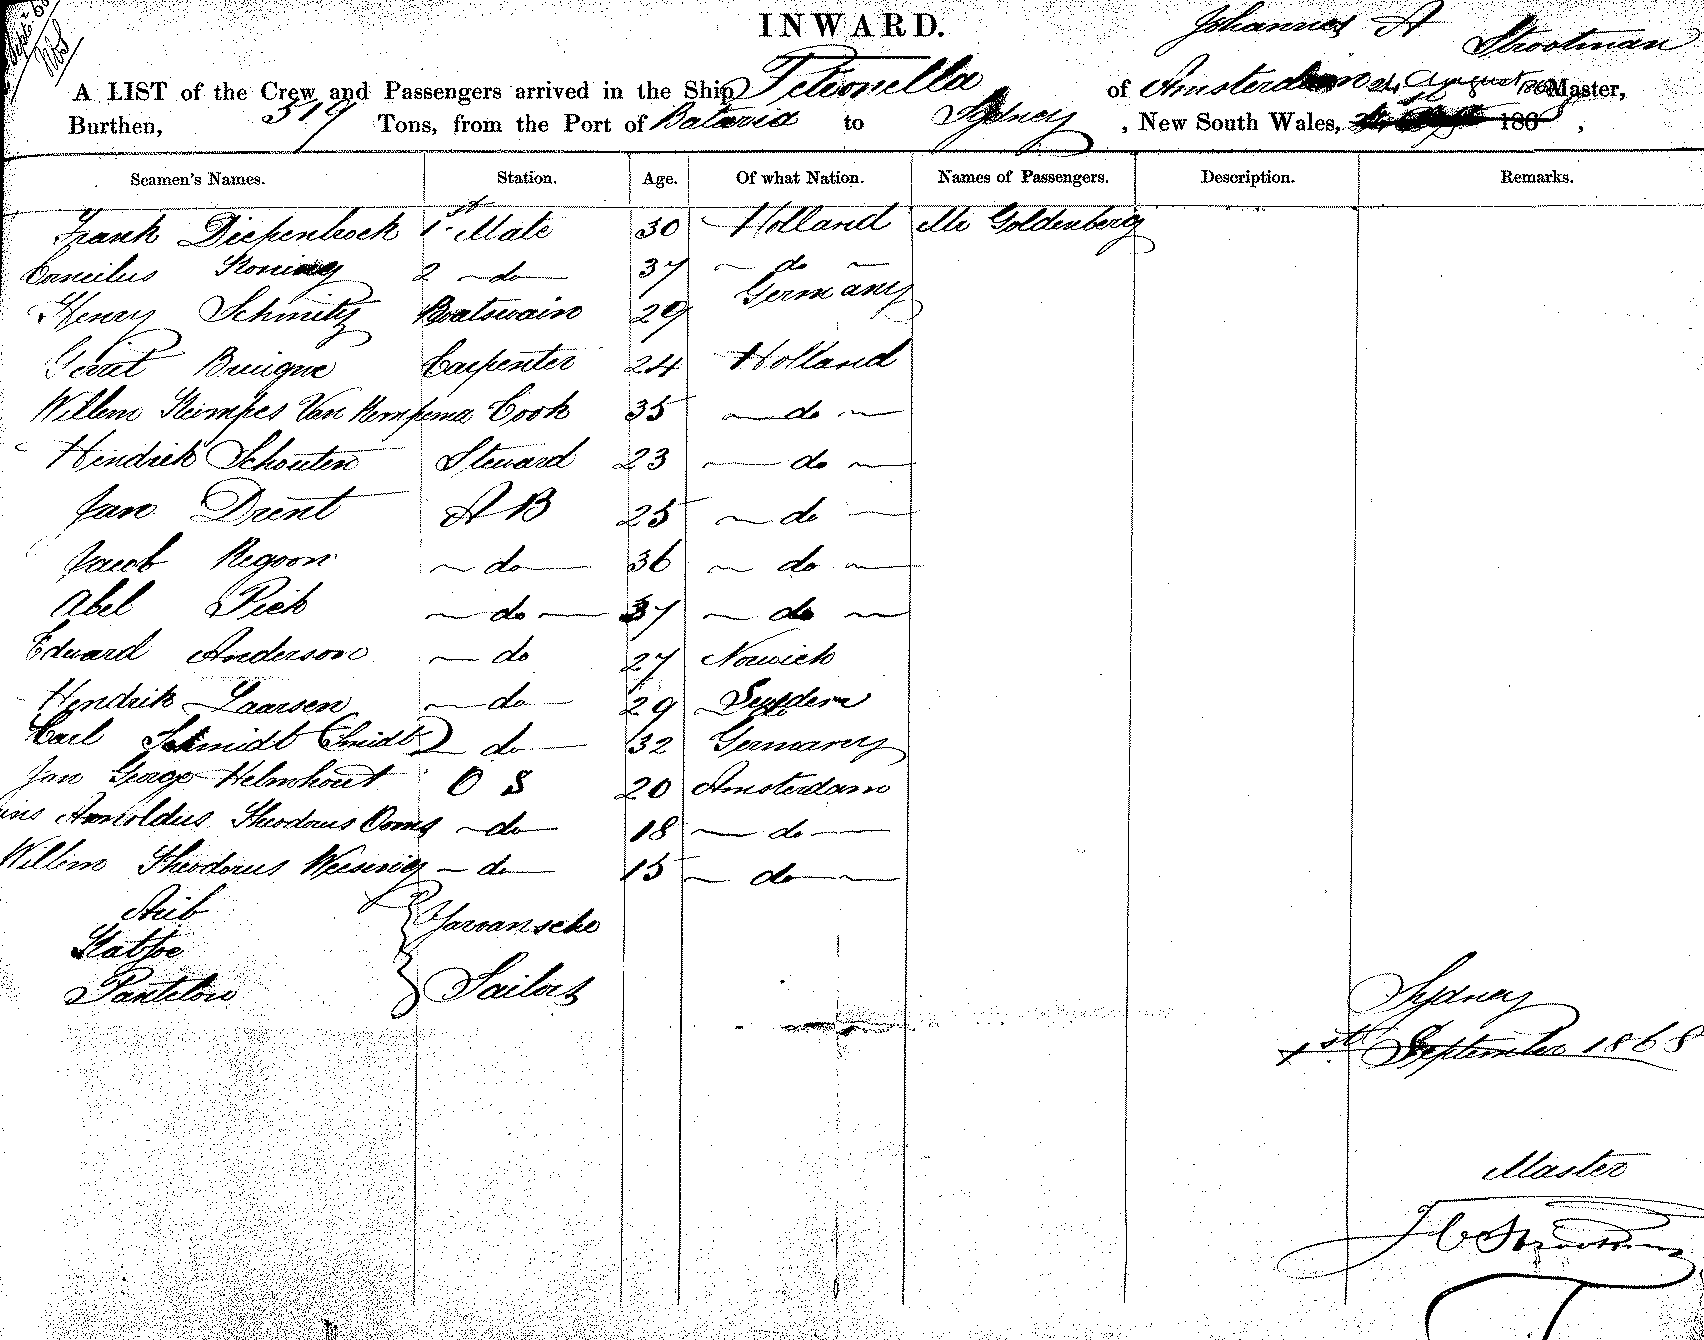 INWARD.
Johannes A Strootman
A LIST of the Crew and Passengers arrived in the Ship Petronella of Amsterdam Master,
Burthen, 319 Tons, from the Port of Batavia to Sydney, New South Wales, 186 ,
Seamen's Names. Station. Age. Of what Nation. Names of Passengers. Description. Remarks.
Frank Diepenbroek 1st Mate 30 Holland Mr Goldenberg
Cornelius Koning 2 do 37 do
Henry Schmitz Boatswain 29 Germany
Gerrit Carpenter 24 Holland
Willem Kempes Van Kempema Cook 35 do
Hendrik Schouten Steward 23 do
Jan Drent A B 25 do
Jacob Regoon do 36 do
Abel Piek do 37 do
Edward Anderson do 27 Norwich
Hendrik Laarsen do 29
Carl Schmidt (Smidt) do 32 Germany
Jan George Helmhout O S 20 Amsterdam
Arnoldus Theodorus Ooms do 18 do
Willem Theodorus do 15 do
Arib
Javansche
Sailors
Sydney
1st September 1868
Master